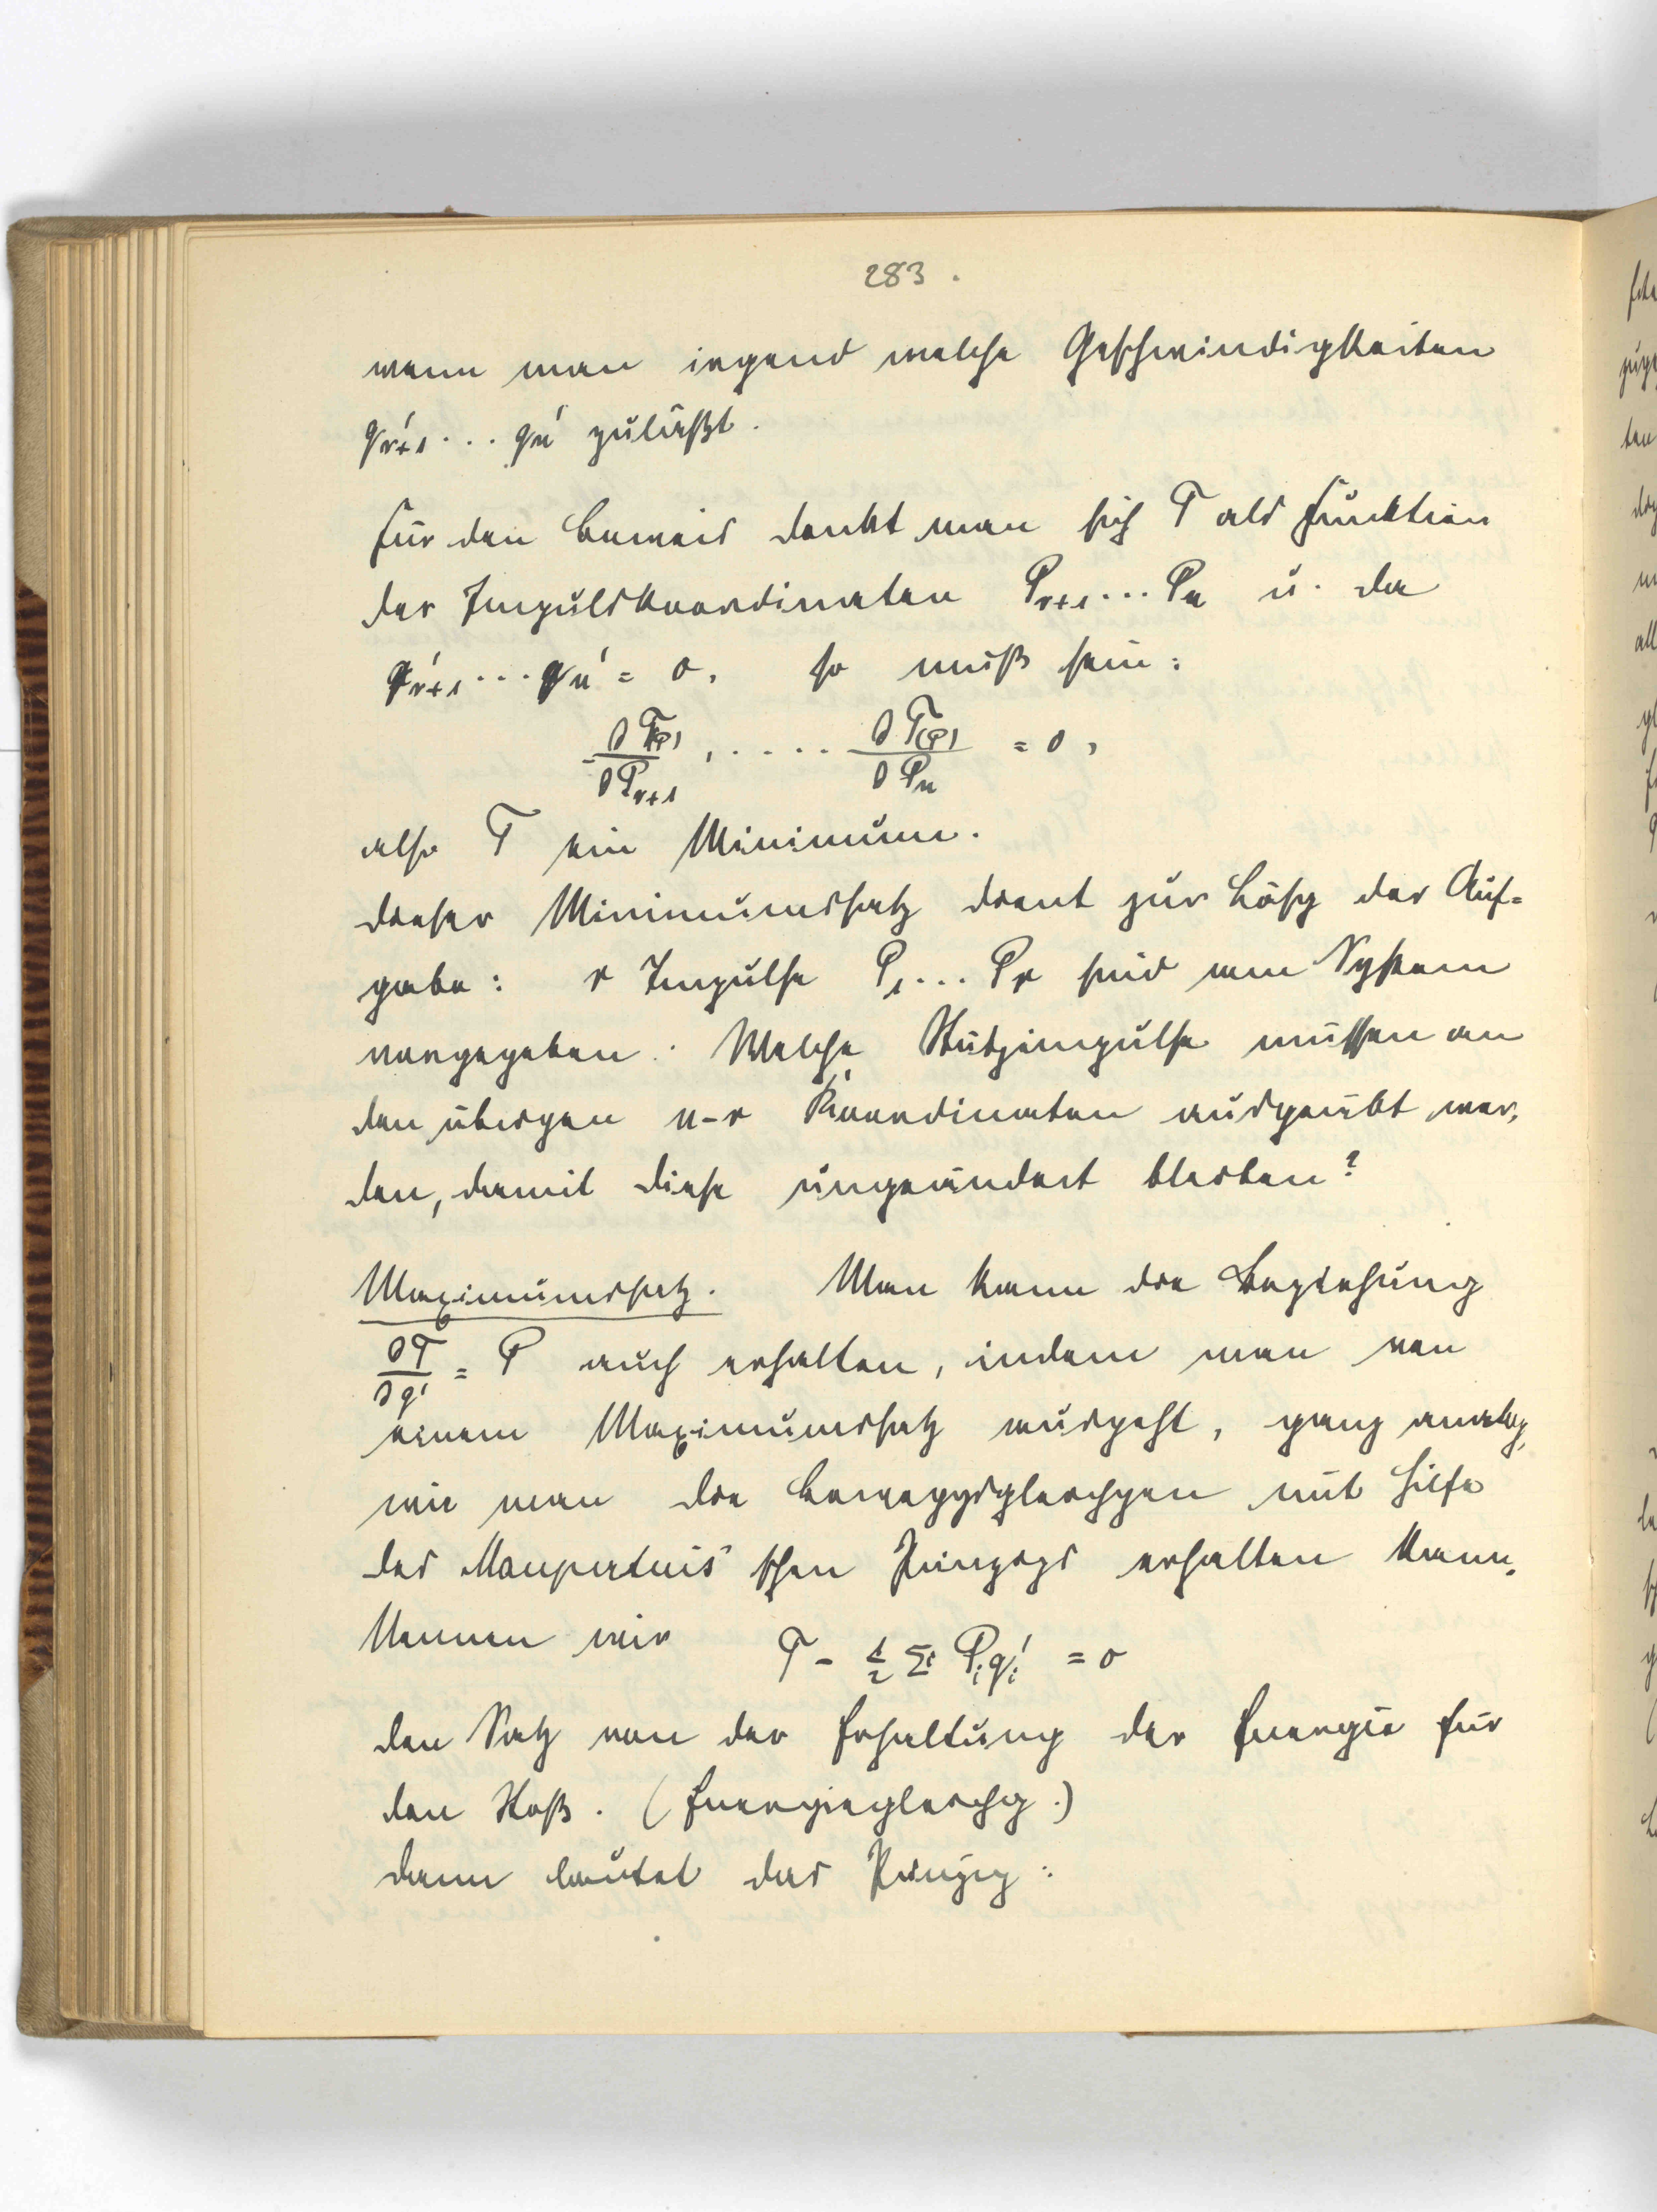 283.
wenn man irgend welche Geschwindigkeiten
q'ᵣ₊₁ ... qₙ' zuläßt.
Für den Beweis denkt man sich T als Funktion
der Impulskoordinaten Pᵣ₊₁ ... Pₙ u. da
q'ᵣ₊₁ ... qₙ' = 0, so muß sein:
∂T(P)/∂Pᵣ₊₁, ..... ∂T(P)/∂Pₙ = 0,
also T ein Minimum.
Dieser Minimumssatz dient zur Lösg der Auf=
gabe: r Impulse P₁ ... Pᵣ sind am System
vorgegeben. Welche Stützimpulse müssen an
den übrigen n-r Koordinaten ausgeübt wer-
den, damit diese ungeändert bleiben?
Maximumssatz. Man kann die Beziehung
∂T/∂q' = P auch erhalten, indem man von
einem Maximumssatz ausgeht, ganz analog,
wie man die Bewegsgleichgen mit Hilfe
des Maupertuis'schen Prinzips erhalten kann.
Nennen wir T - ½ Σ Pᵢqᵢ' = 0
den Satz von der Erhaltung der Energie für
den Stoß. (Energiegleichg.)
Dann lautet das Prinzip: